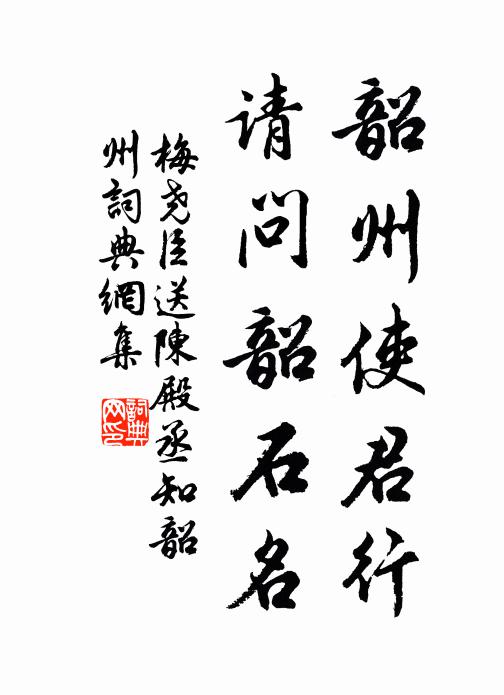 韶州使君行
请问韶石名
梅尧臣送陳殿丞知韶
州詞典網集
詞典
网印